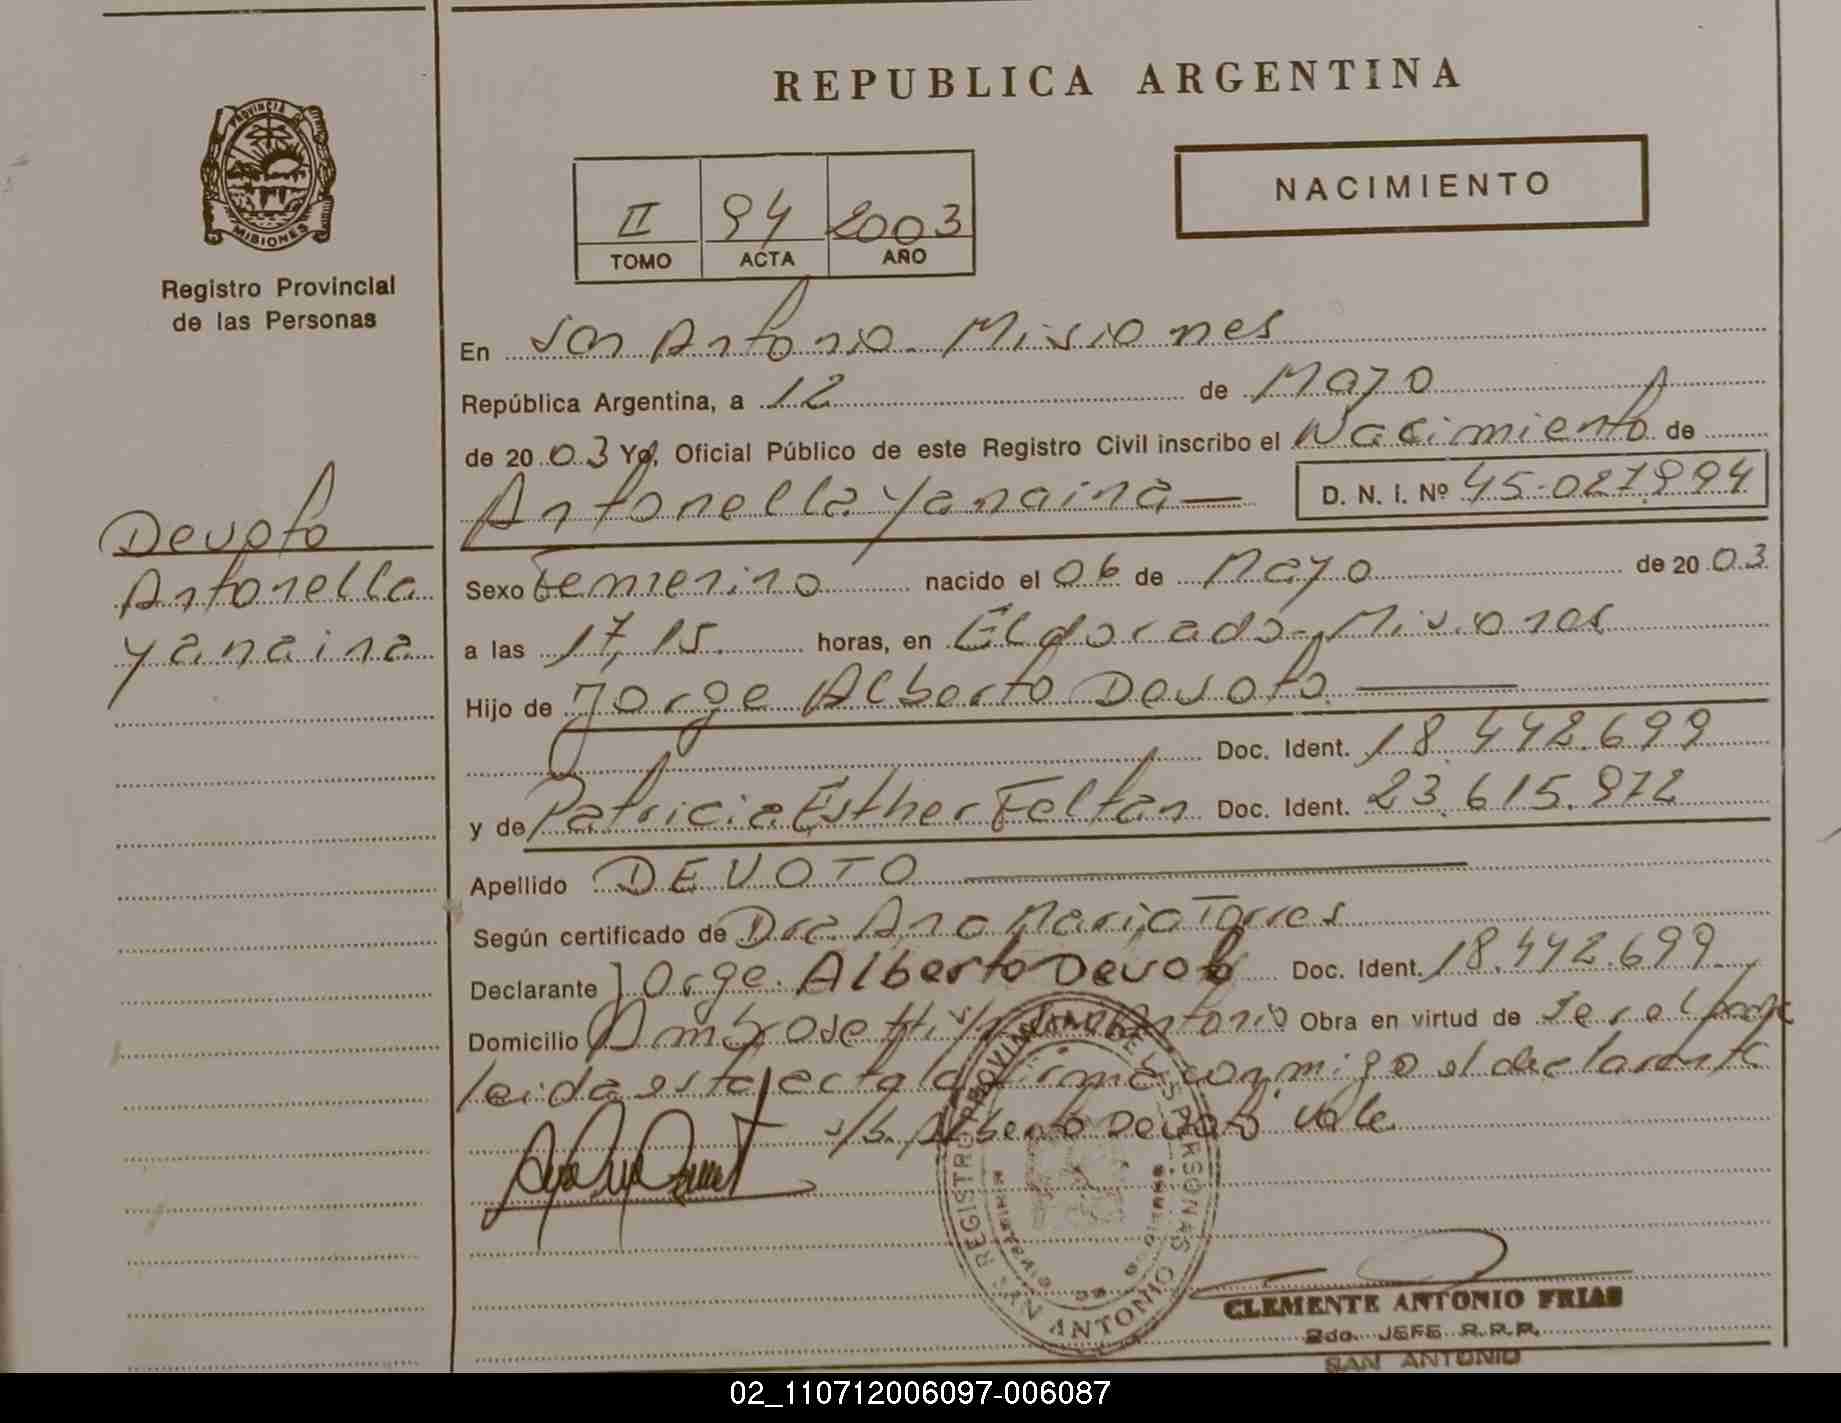 REPUBLICA ARGENTINA
PROVINCIA DE
MISIONES
Registro Provincial
de las Personas
NACIMIENTO
II 94 2003
TOMO ACTA AÑO
En San Antonio - Misiones
República Argentina, a 12 de Mayo
de 2003 Yo, Oficial Público de este Registro Civil inscribo el Nacimiento de
Antonella Yanaina D. N. I. Nº 45.027.994
Devoto
Antonella
Yanaina
Sexo Femenino nacido el 06 de Mayo de 2003
a las 17,15 horas, en Eldorado - Misiones
Hijo de Jorge Alberto Devoto
Doc. Ident. 18.442.699
y de Patricia Esther Feltan Doc. Ident. 23.615.972
Apellido DEVOTO
Según certificado de Dra Ana Maria Torres
Declarante Jorge Alberto Devoto Doc. Ident. 18.442.699
Domicilio Ambrosetti s/n San Antonio Obra en virtud de
leida esta acta la firma conmigo el declarante
s/b. Alberto Devoto vale
REGISTRO PROVINCIAL DE LAS PERSONAS
SAN ANTONIO
CLEMENTE ANTONIO FRIAS
2do. JEFE R.R.P.
SAN ANTONIO
02_110712006097-006087